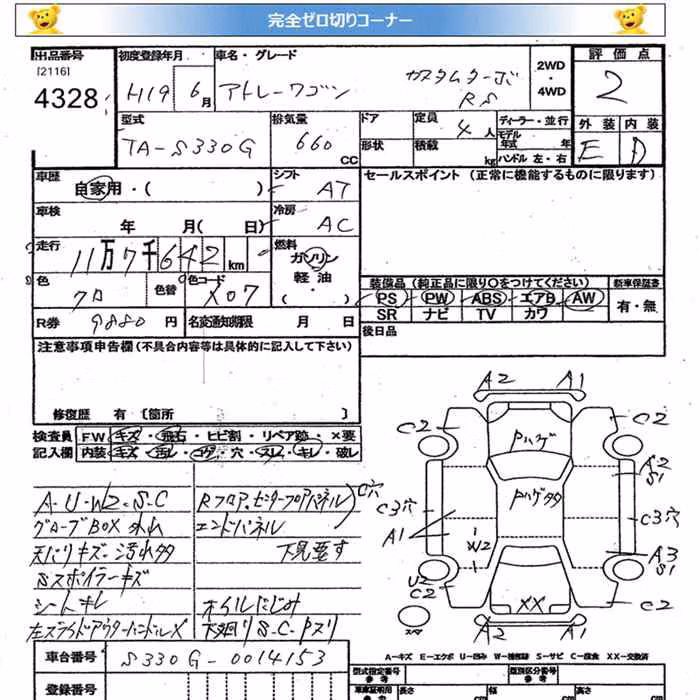 完全ゼロ切りコーナー
出品番号 初度登録年月 車名・グレード 2WD・4WD 評価点
[2116]
4328
H19 6月 アトレーワゴン カスタムターボ RS 2
型式 排気量 ドア 定員 4人 ディーラー・並行 外装 内装
TA-S330G 660 CC 形状 積載 kg モデル年式 年 ハンドル 左・右 E D
車歴 シフト セールスポイント (正常に機能するものに限ります)
自家用・( ) AT
車検 冷房
年 月( 日) AC
走行 燃料
11万7千642km ガソリン
軽油
( )
色 色替 色コード
クロ X07
装備品(純正品に限り○をつけてください) 新車保証書
PS PW ABS エアB AW 有・無
SR ナビ TV カワ
R券 9880円 名変通知期限 月 日 後日品
注意事項申告欄(不具合内容等は具体的に記入して下さい)
修復歴 有 [箇所 ]
検査員 FW キズ・飛石・ヒビ割・リペア跡・×要
記入欄 内装 キズ・汚レ・コゲ・穴・スレ・キレ・破レ
A-U-W2-S-C Rフロア、センターフロアパネル C穴
グローブBOX外れ エンドパネル
天バリキズ・汚れ多 下見要す
Sスポイラーキズ
シートキレ オイルにじみ
左スライドアウターハンドルX 下廻りS-C-Pスリ
A2 A1
C2 C2
Pハゲ
A2
S1
Pハゲ多
C3穴 C3穴
A1
W2
A3
S1
U2
C2 C2
XX
スペア A2 A1
A-キズ E-エクボ U-凹み W-補修跡 S-サビ C-腐食 XX-交換済
車台番号 S330G-0014153
登録番号
型式指定番号 参考 類別区分番号 参考
車庫証明用 参考 長さ cm 幅 cm 高さ cm